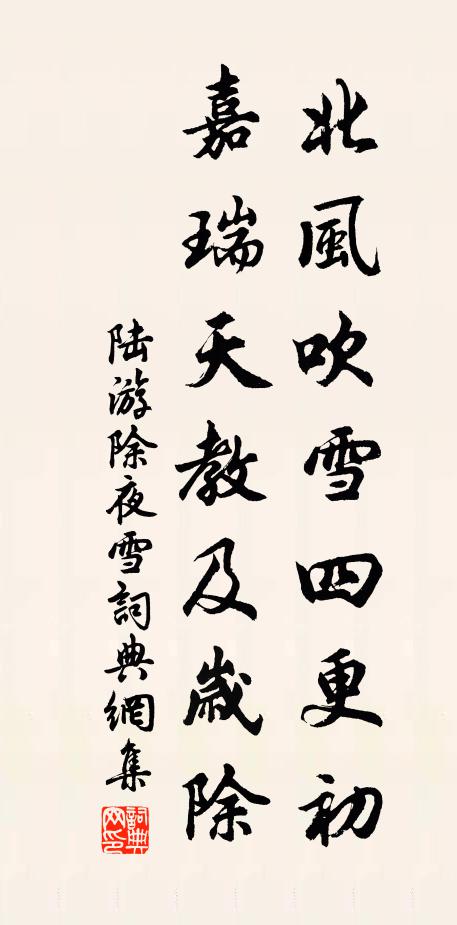 北風吹雪四更初
嘉瑞天教及歲除
陆游除夜雪詞典網集
詞典
网印